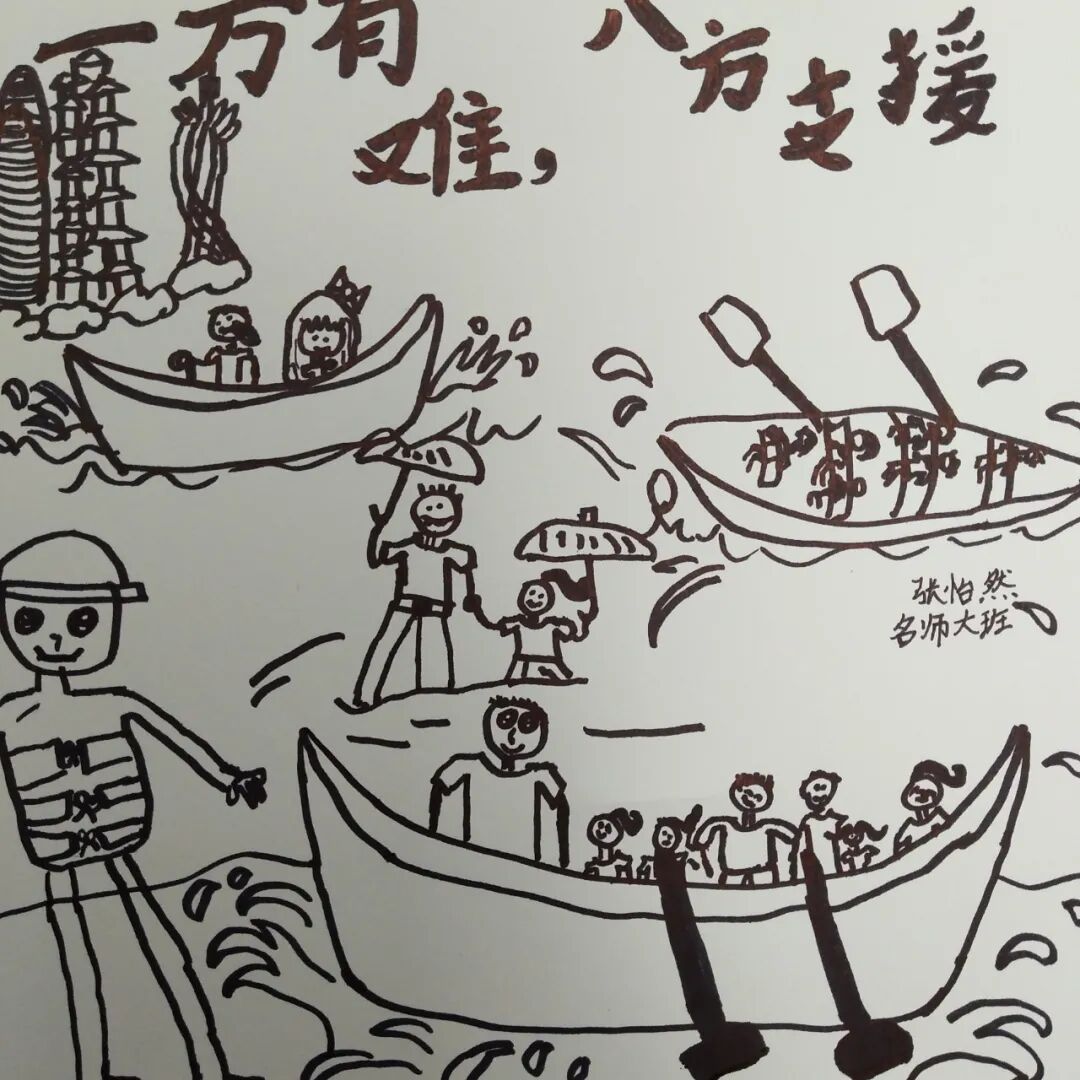 一方有难，八方支援
张怡然
名师大班